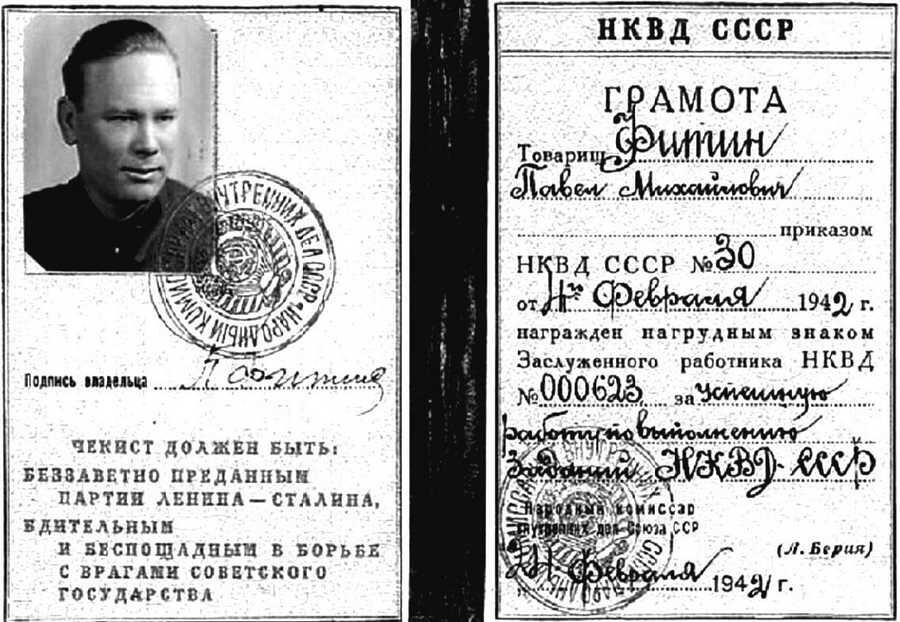 НАРОДНЫЙ КОМИССАРИАТ ВНУТРЕННИХ ДЕЛ СССР
Подпись владельца П Фитин
ЧЕКИСТ ДОЛЖЕН БЫТЬ:
БЕЗЗАВЕТНО ПРЕДАННЫМ
ПАРТИИ ЛЕНИНА—СТАЛИНА,
БДИТЕЛЬНЫМ
И БЕСПОЩАДНЫМ В БОРЬБЕ
С ВРАГАМИ СОВЕТСКОГО
ГОСУДАРСТВА
НКВД СССР
ГРАМОТА
Товарищ Фитин
Павел Михайлович
приказом
НКВД СССР № 30
от 4го Февраля 1942 г.
награжден нагрудным знаком
Заслуженного работника НКВД
№ 000623 за успешную
работу по выполнению
Заданий НКВД-СССР
Народный комиссар
внутренних дел Союза ССР
(Л. Берия)
Февраля 1942 г.